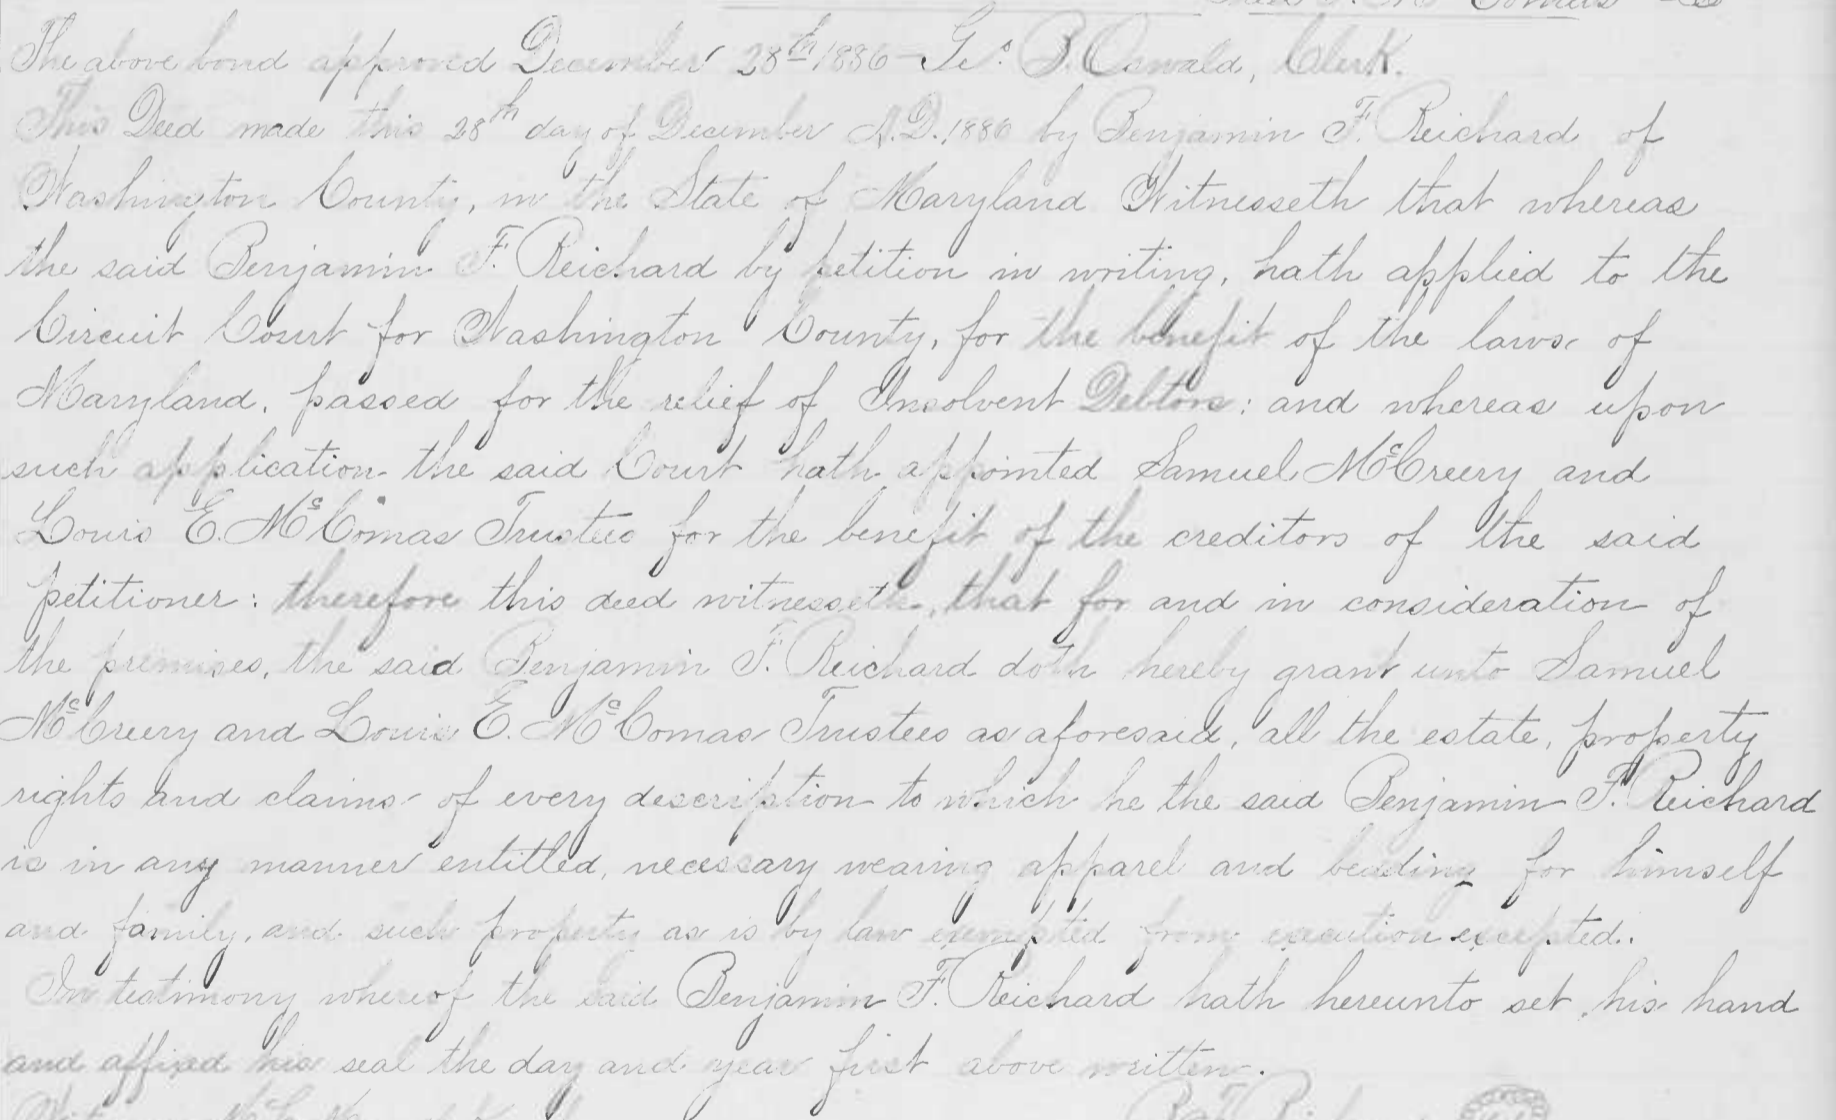 The above bond approved December 28th 1886 - Geo. B. Oswald, Clerk.
This Deed made this 28th day of December A.D. 1886 by Benjamin F. Reichard of
Washington County, in the State of Maryland Witnesseth that whereas
the said Benjamin F. Reichard by petition in writing, hath applied to the
Circuit Court for Washington County, for the benefit of the laws of
Maryland, passed for the relief of Insolvent Debtors: and whereas upon
such application the said Court hath appointed Samuel McCreery and
Louis E. McComas Trustees for the benefit of the creditors of the said
petitioner: therefore this deed witnesseth, that for and in consideration of
the premises, the said Benjamin F. Reichard doth hereby grant unto Samuel
McCreery and Louis E. McComas Trustees as aforesaid, all the estate, property
rights and claims of every description to which he the said Benjamin F. Reichard
is in any manner entitled, necessary wearing apparel and bedding for himself
and family, and such property as is by law exempted from execution excepted.
In testimony whereof the said Benjamin F. Reichard hath hereunto set his hand
and affixed his seal the day and year first above written.